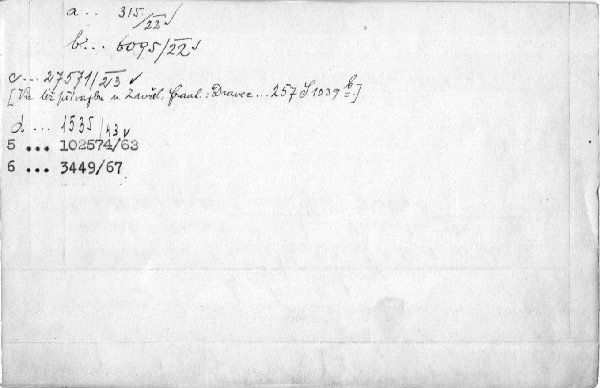 a... 315/22 √
b... 6095/22 √
c... 27571/23 √
[Viz též přívazbu u Zavřel, Frant.: Dravec... 257 S 1039
d... 1535/43 √
5 ... 102574/63
6 ... 3449/67